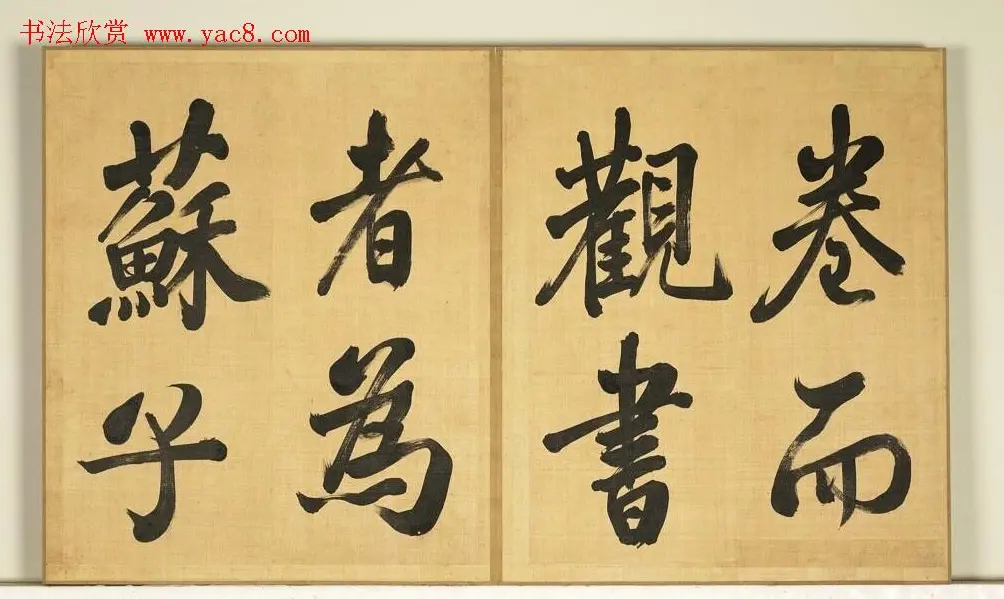 书法欣赏 www.yac8.com
卷而
觀書
者為
蘇乎